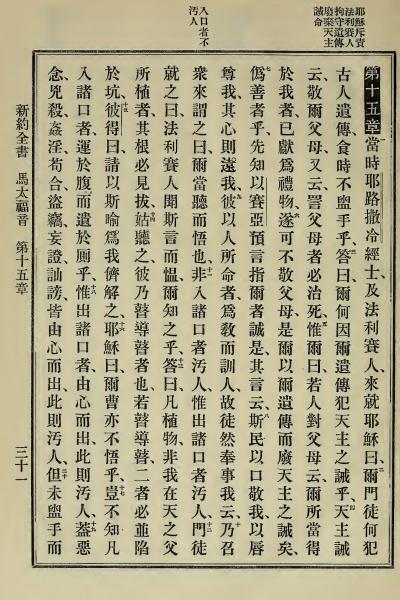 耶穌斥責
法利賽人
拘守遺傳
廢棄天主
誡命
入口者不
汚人
第十五章一當時耶路撒冷經士及法利賽人來就耶穌曰、二爾門徒何犯
古人遺傳、食時不盥手乎、三答曰、爾何因爾遺傳犯天主之誡乎、四天主誡
云、敬爾父母、又云、詈父母者必治死、五惟爾曰、若人對父母云、爾所當得
於我者、已獻爲禮物、六遂可不敬父母、是爾以爾遺傳而廢天主之誡矣、
七僞善者乎、先知以賽亞預言指爾者誠是、其言云、八斯民以口敬我、以脣
尊我、其心則遠我、九彼以人所命者爲敎而訓人、故徒然奉事我云、十乃召
衆來、謂之曰、爾當聽而悟也、十一非入諸口者汚人、惟出諸口者汚人、十二門徒
就之曰、法利賽人聞斯言而慍、爾知之乎、十三答曰、凡植物非我在天之父
所植者、其根必見拔、十四姑聽之、彼乃瞽導瞽者也、若瞽導瞽、二者必並陷
於坑、十五彼得曰、請以斯喩爲我儕解之、十六耶穌曰、爾曹亦不悟乎、十七豈不知凡
入諸口者、運於腹而遺於厠乎、十八惟出諸口者、由心而出、此則汚人、十九蓋惡
念、兇殺、姦淫、苟合、盜竊、妄證、訕謗、皆由心而出、二十此則汚人、但未盥手而
新約全書　馬太福音　第十五章　三十一